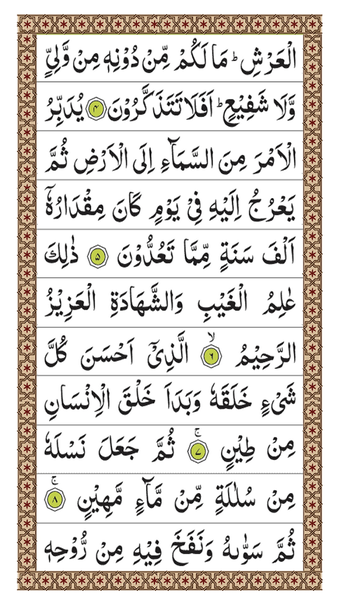 الۡعَرۡشِ ؕ مَا لَكُمۡ مِّنۡ دُوۡنِهٖ مِنۡ وَّلِىٍّ
وَّلَا شَفِيۡعٍ ؕ اَفَلَا تَتَذَكَّرُوۡنَ ۴ يُدَبِّرُ
الۡاَمۡرَ مِنَ السَّمَآءِ اِلَى الۡاَرۡضِ ثُمَّ
يَعۡرُجُ اِلَيۡهِ فِىۡ يَوۡمٍ كَانَ مِقۡدَارُهٗۤ
اَلۡفَ سَنَةٍ مِّمَّا تَعُدُّوۡنَ ۵ ذٰلِكَ
عٰلِمُ الۡغَيۡبِ وَالشَّهَادَةِ الۡعَزِيۡزُ
الرَّحِيۡمُ ۙ ۶ الَّذِىۡۤ اَحۡسَنَ كُلَّ
شَىۡءٍ خَلَقَهٗ وَبَدَاَ خَلۡقَ الۡاِنۡسَانِ
مِنۡ طِيۡنٍ ۚ ۷ ثُمَّ جَعَلَ نَسۡلَهٗ
مِنۡ سُلٰلَةٍ مِّنۡ مَّآءٍ مَّهِيۡنٍ ۚ ۸
ثُمَّ سَوّٰٮهُ وَنَفَخَ فِيۡهِ مِنۡ رُّوۡحِهٖ